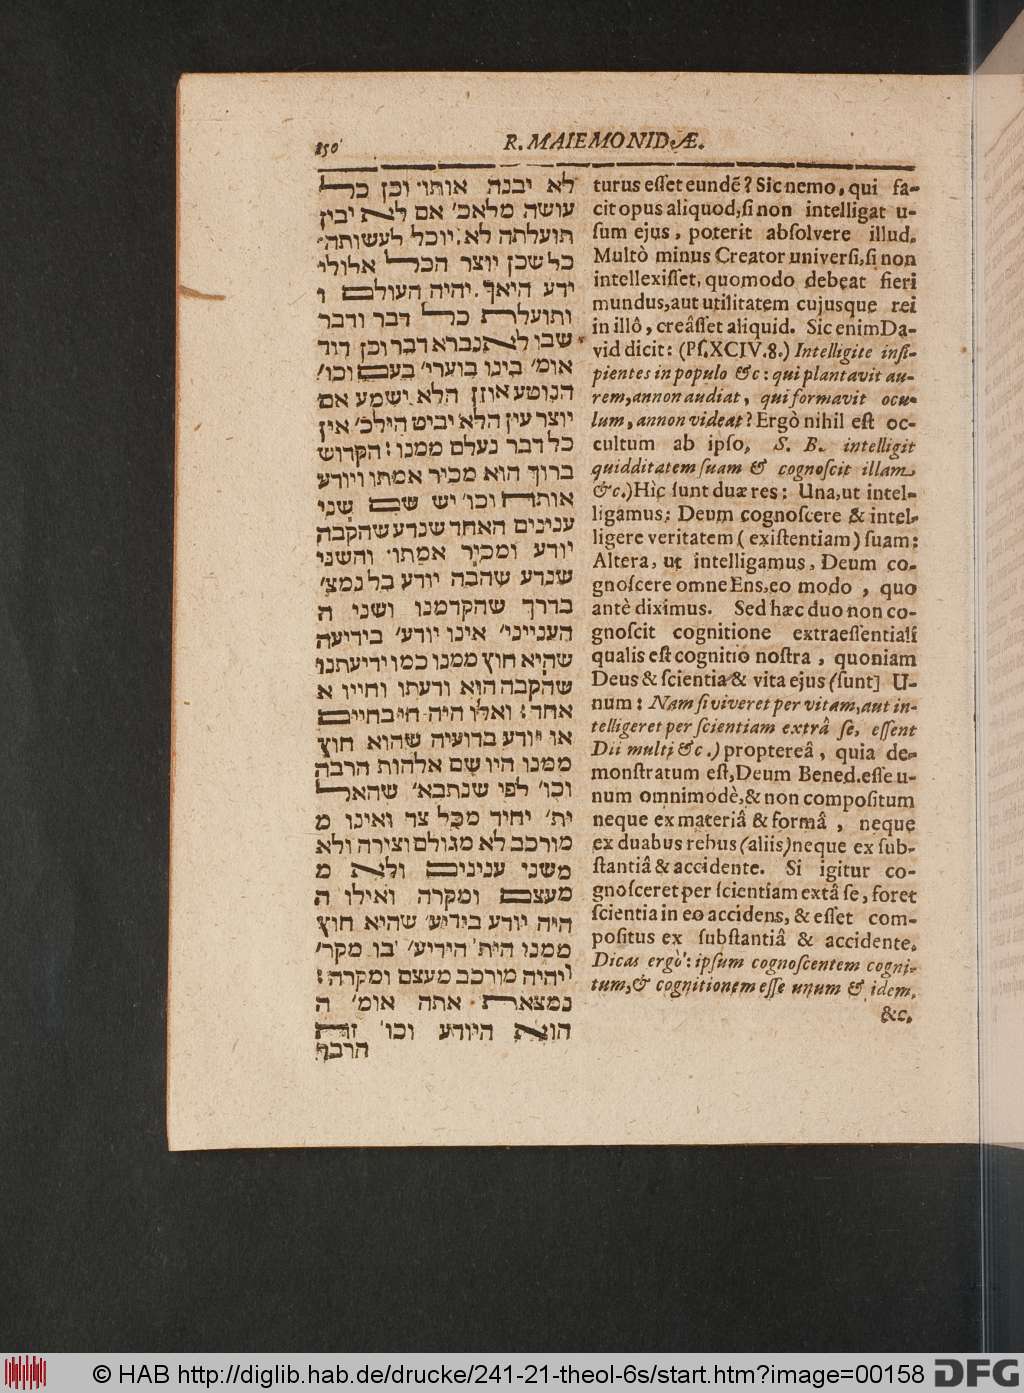 150
R. MAIEMONIDÆ.
לא יבנה אותו׳ וכן כל
עושה מלאכ׳ אם לא יבין
תועלתה לא יוכל לעשותה׳
כל שכן יוצר הכל אלולי
ידע היאך יהיה העולם ו
ותועלת כל דבר ודבר
שבו לא נברא דבר וכן דוד
אומ׳ בינו בוערי׳ בעם וכו׳
הנוטע אוזן הלא ישמע אם
יוצר עין הלא יביט הילכ׳ אין
כל דבר נעלם ממנו: הקדוש
ברוך הוא מכיר אמתו ויודע
אותה וכו׳ יש שם שני
ענינים האחד שנדע שהקבה
יודע ומכיר אמתו׳ והשני
שנדע שהבה יודע כל נמצ׳
בדרך שהקדמנו ושני ה
הענייני׳ אינו יודע׳ בידיעה
שהיא חוץ ממנו כמו ידיעתנו
שהקבה הוא ודעתו וחייו א
אחד: ואלו היה חי בחיים
או יודע בדועיה שהוא חוץ
ממנו היו שם אלהות הרבה
וכו׳ לפי שנתבא׳ שהאל
ית׳ יחיד מכל צד ואינו מ
מורכב לא מגולם וצירה ולא
משני ענינים ולא מ
מעצם ומקרה ואילו ה
היה יודע בידיע׳ שהיא חוץ
ממנו הית׳ הידיע׳ בו מקר׳
ויהיה מורכב מעצם ומקרה:
נמצאת אתה אומ׳ ה
הוא היודע וכו׳ זה
הרבר
turus esset eundẽ? Sic nemo, qui fa-
cit opus aliquod, si non intelligat u-
sum ejus, poterit absolvere illud.
Multò minus Creator universi, si non
intellexisset, quomodo debeat fieri
mundus, aut utilitatem cujusque rei
in illô, creâsset aliquid. Sic enim Da-
vid dicit: (Ps. XCIV. 8.) Intelligite insi-
pientes in populo &c: qui plantavit au-
rem, annon audiat, qui formavit ocu-
lum, annon videat? Ergò nihil est oc-
cultum ab ipso, S. B. intelligit
quidditatem suam & cognoscit illam
&c.) Hic sunt duæ res: Una, ut intel-
ligamus; Deum cognoscere & intel-
ligere veritatem (existentiam) suam:
Altera, ut intelligamus, Deum co-
gnoscere omne Ens, eo modo, quo
antè diximus. Sed hæc duo non co-
gnoscit cognitione extraessentiali
qualis est cognitio nostra, quoniam
Deus & scientia & vita ejus (sunt] U-
num: Nam si viveret per vitam, aut in-
telligeret per scientiam extrâ se, essent
Dii multi &c.) proptereâ, quia de-
monstratum est, Deum Bened. esse u-
num omnimodè, & non compositum
neque ex materiâ & formâ, neque
ex duabus rebus (aliis) neque ex sub-
stantiâ & accidente. Si igitur co-
gnosceret per scientiam extâ se, foret
scientia in eo accidens, & esset com-
positus ex substantiâ & accidente.
Dicas ergò: ipsum cognoscentem cogni-
tum, & cognitionem esse unum & idem.
&c.
© HAB http://diglib.hab.de/drucke/241-21-theol-6s/start.htm?image=00158
DFG